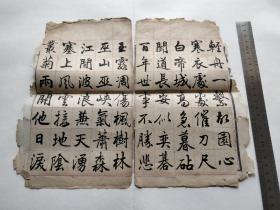 輕舟一繫故園心
寒衣處〻催刀尺
白帝城高急暮砧
聞道長安似奕碁
百年世事不勝悲
玉露凋傷楓樹林
巫山巫峽氣蕭森
江間波浪兼天湧
塞上風雲接地陰
叢菊兩開他日淚